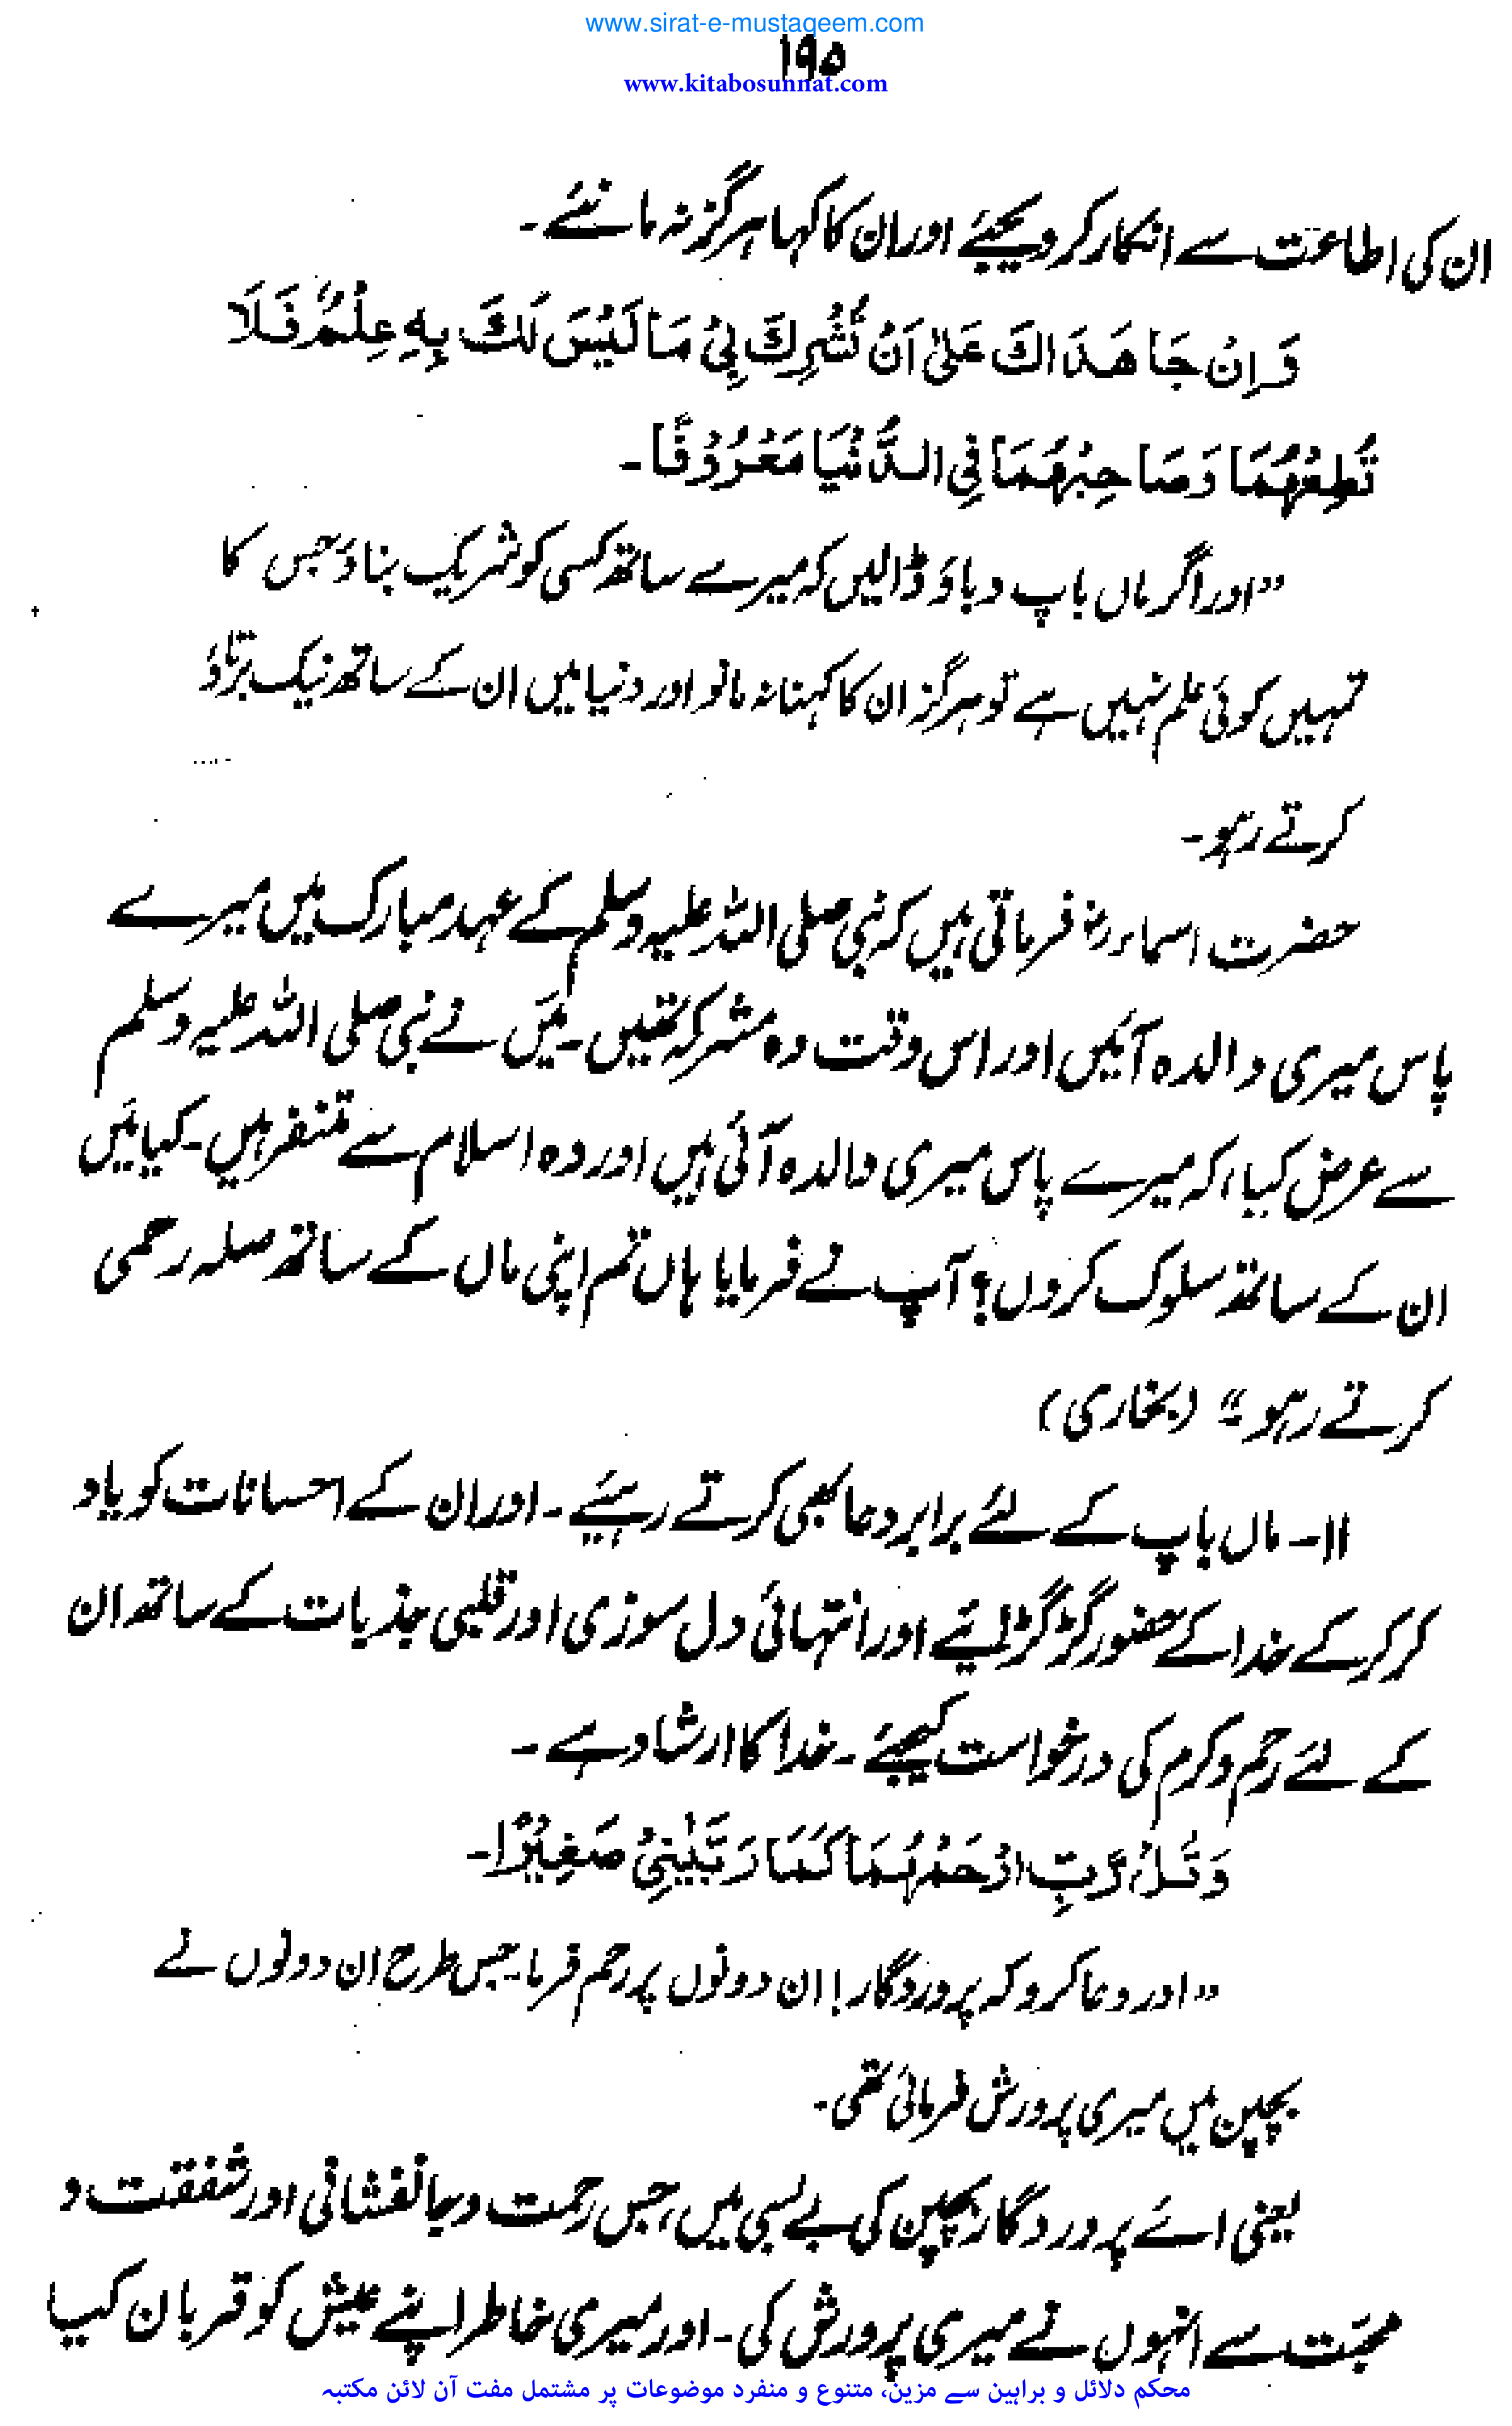 www.sirat-e-mustaqeem.com
۱۹۵
www.kitabosunnat.com
ان کی اطاعت سے انکار کر دیجئے اور ان کا کہا ہرگز نہ مانئے ۔
وَاِنْ جَاهَدَاكَ عَلىٰ اَنْ تُشْرِكَ بِيْ مَا لَيْسَ لَكَ بِهٖ عِلْمٌ فَلَا
تُطِعْهُمَا وَصَاحِبْهُمَا فِي الدُّنْيَا مَعْرُوْفًا ۔
”اور اگر ماں باپ دباؤ ڈالیں کہ میرے ساتھ کسی کو شریک بناؤ جس کا
تمہیں کوئی علم نہیں ہے تو ہرگز ان کا کہنا نہ مانو اور دنیا میں ان کے ساتھ نیک برتاؤ
کرتے رہو ۔
حضرت اسماءرضؓ فرماتی ہیں کہ نبی صلی اللہ علیہ وسلم کے عہد مبارک میں میرے
پاس میری والدہ آئیں اور اس وقت وہ مشرکہ تھیں ۔ میَں نے نبی صلی اللہ علیہ وسلم
سے عرض کیا ، کہ میرے پاس میری والدہ آئی ہیں اور وہ اسلام سے متنفر ہیں ۔ کیا میَں
ان کے ساتھ سلوک کروں ؟ آپ نے فرمایا ہاں تم اپنی ماں کے ساتھ صلہ رحمی
کرتے رہو ۔“ (بخاری)
۱۱۔ ماں باپ کے لئے برابر دعا بھی کرتے رہیئے ۔ اور ان کے احسانات کو یاد
کر کر کے خدا کے حضور گڑگڑائیے اور انتہائی دل سوزی اور قلبی جذبات کے ساتھ ان
کے لئے رحم و کرم کی درخواست کیجئے ۔ خدا کا ارشاد ہے ۔
وَقُلْ رَّبِّ ارْحَمْهُمَا كَمَا رَبَّيٰنِيْ صَغِيْرًا ۔
”اور دعا کرو کہ پروردگار ! ان دونوں پر رحم فرما ۔ جس طرح ان دونوں نے
بچپن میں میری پرورش فرمائی تھی ۔
یعنی اے پروردگار بچپن کی بے بسی میں ، جس رحمت و جانفشانی اور شفقت و
محبّت سے انہوں نے میری پرورش کی ۔ اور میری خاطر اپنے عیش کو قربان کیا
محکم دلائل و براہین سے مزین، متنوع و منفرد موضوعات پر مشتمل مفت آن لائن مکتبہ